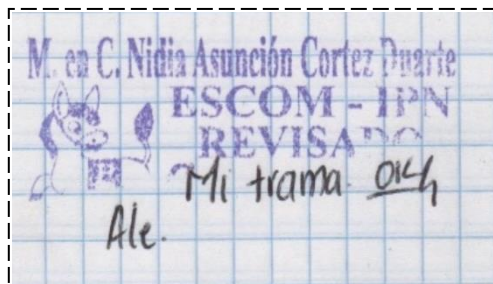 M. en C. Nidia Asunción Cortez Duarte
ESCOM - IPN
REVISADO
Mi trama
Ale.